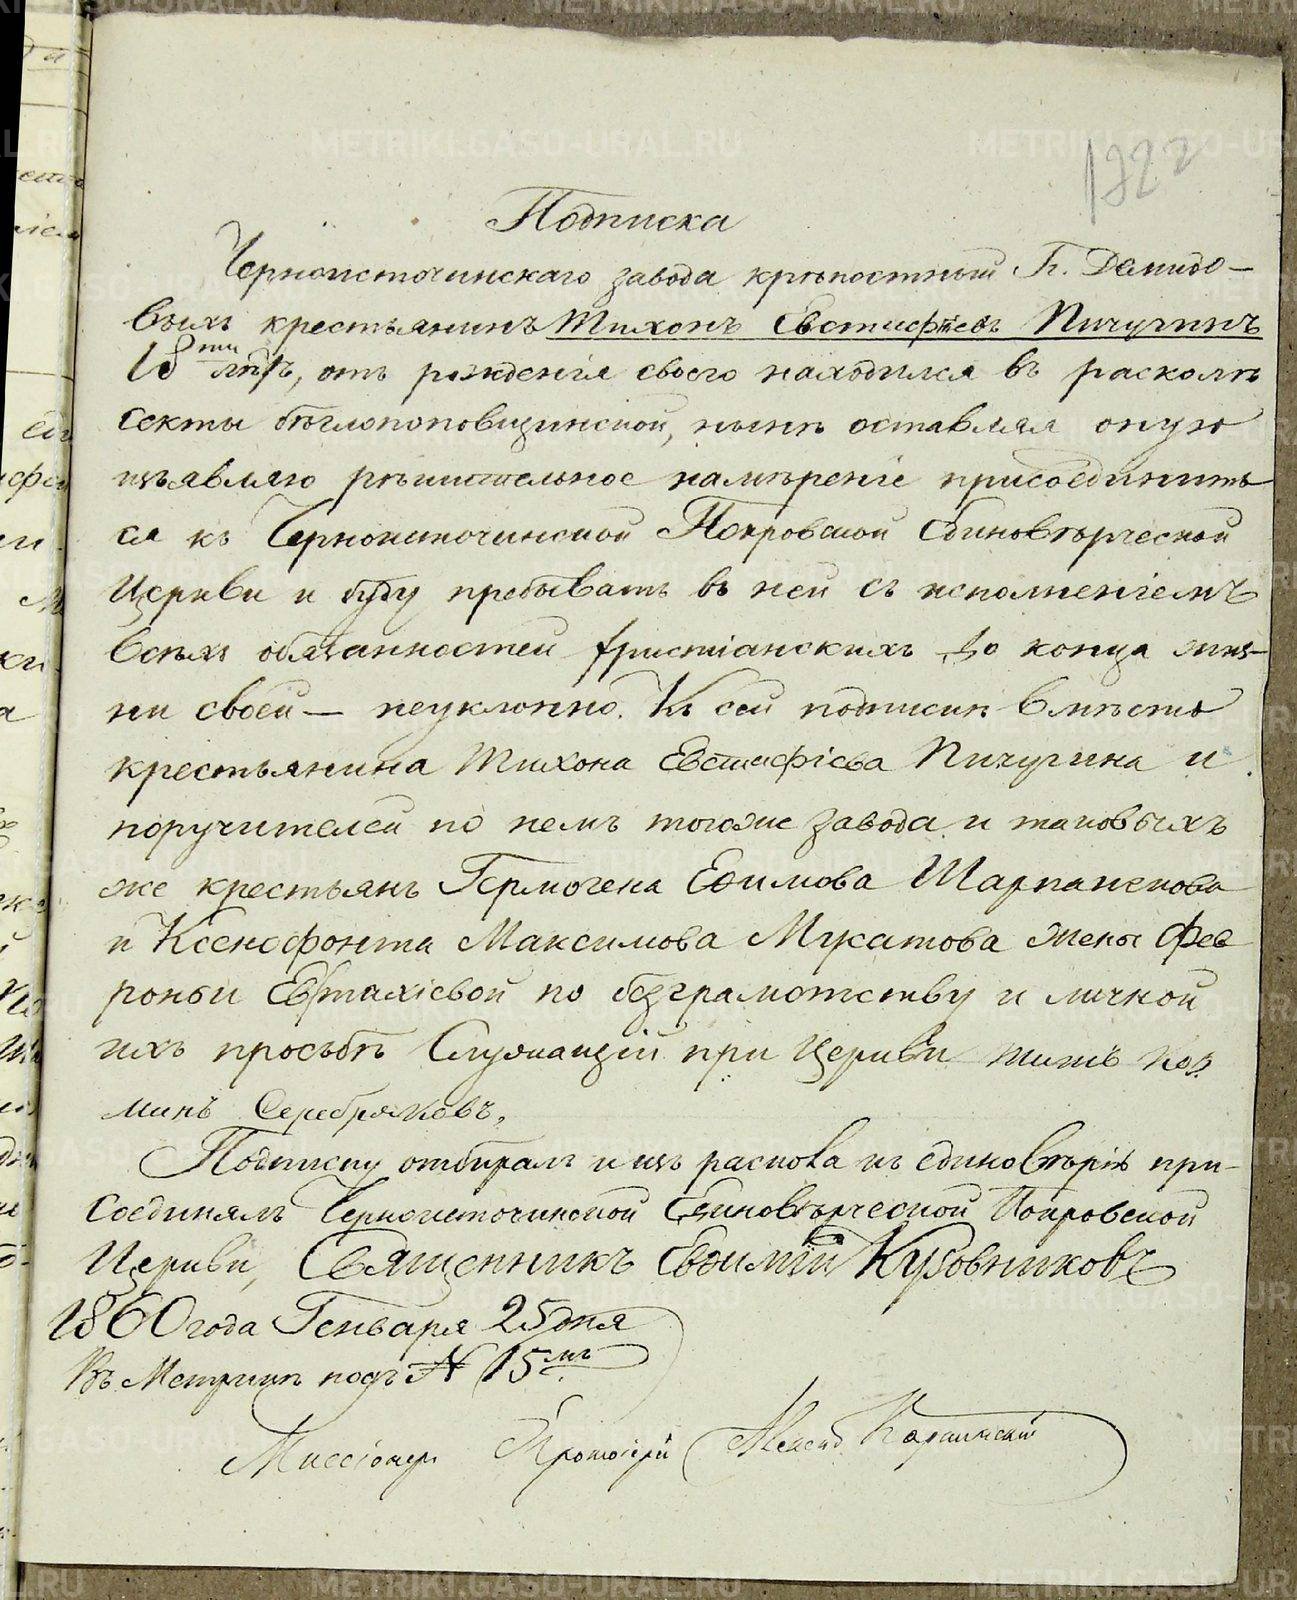 1322
Подписка
Черноисточинскаго завода крѣпостный Г. Демидо-
выхъ крестьянинъ Тихонъ Евстафіевъ Пичугинъ
18ти лѣтъ, отъ рожденія своего находился въ расколѣ
секты бѣглопоповщинской, нынѣ оставляя оную
изъявляю рѣшительное намѣреніе присоединить
ся къ Черноисточинской Покровской Единовѣрческой
Церкви и буду пребывать въ ней съ исполненіемъ
всѣхъ обязанностей христіанскихъ до конца жиз-
ни своей — неуклонно. Къ сей подпискѣ вмѣсто
крестьянина Тихона Евстафіева Пичугина и
поручителей по немъ тогоже завода и таковыхъ
же крестьянъ Гермогена Ефимова
и Ксенофонта Максимова жены Фев
роньи по безграмотству и личной
ихъ просьбѣ Служащій при Церкви Титъ Коз
минъ Серебряковъ.
Подписку отбиралъ и изъ раскола къ единовѣрію при-
соединялъ Черноисточинской Единовѣрческой Покровской
Церкви, Священникъ Евѳимій Кудовниковъ
1860 года Генваря 25 дня
Въ Метрикѣ подъ № 15мъ
Миссіонеръ Протоіерей